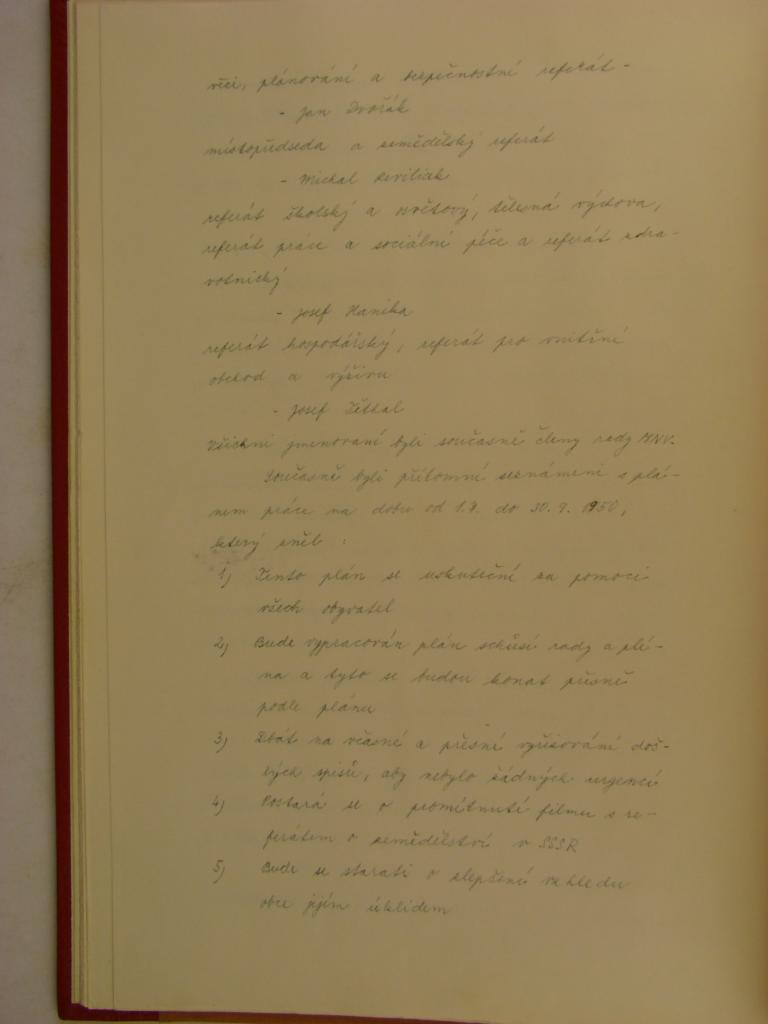 věci, plánování a bezpečnostní referát -
- Jan Dvořák
místopředseda a zemědělský referát
- Michal
referát školský a osvětový, tělesná výchova,
referát práce a sociální péče a referát zdra-
votnický
- Josef Hanika
referát hospodářský, referát pro vnitřní
obchod a výživu
- Josef
Všichni jmenovaní byli současně členy rady MNV.
Současně byli přítomní seznámeni s plá-
nem práce na dobu od 1.9. do 30.9. 1950,
který zněl :
1) Tento plán se uskuteční za pomoci
všech obyvatel
2) Bude vypracován plán schůzí rady a plé-
na a tyto se budou konat přesně
podle plánu
3) Dbát na včasné a přesné vyřizování doš-
lých spisů, aby nebylo žádných urgencí
4) Postará se o promítnutí filmu s re-
ferátem o zemědělství v SSSR
5) Bude se starati o zlepšení vzhledu
obce jejím úklidem